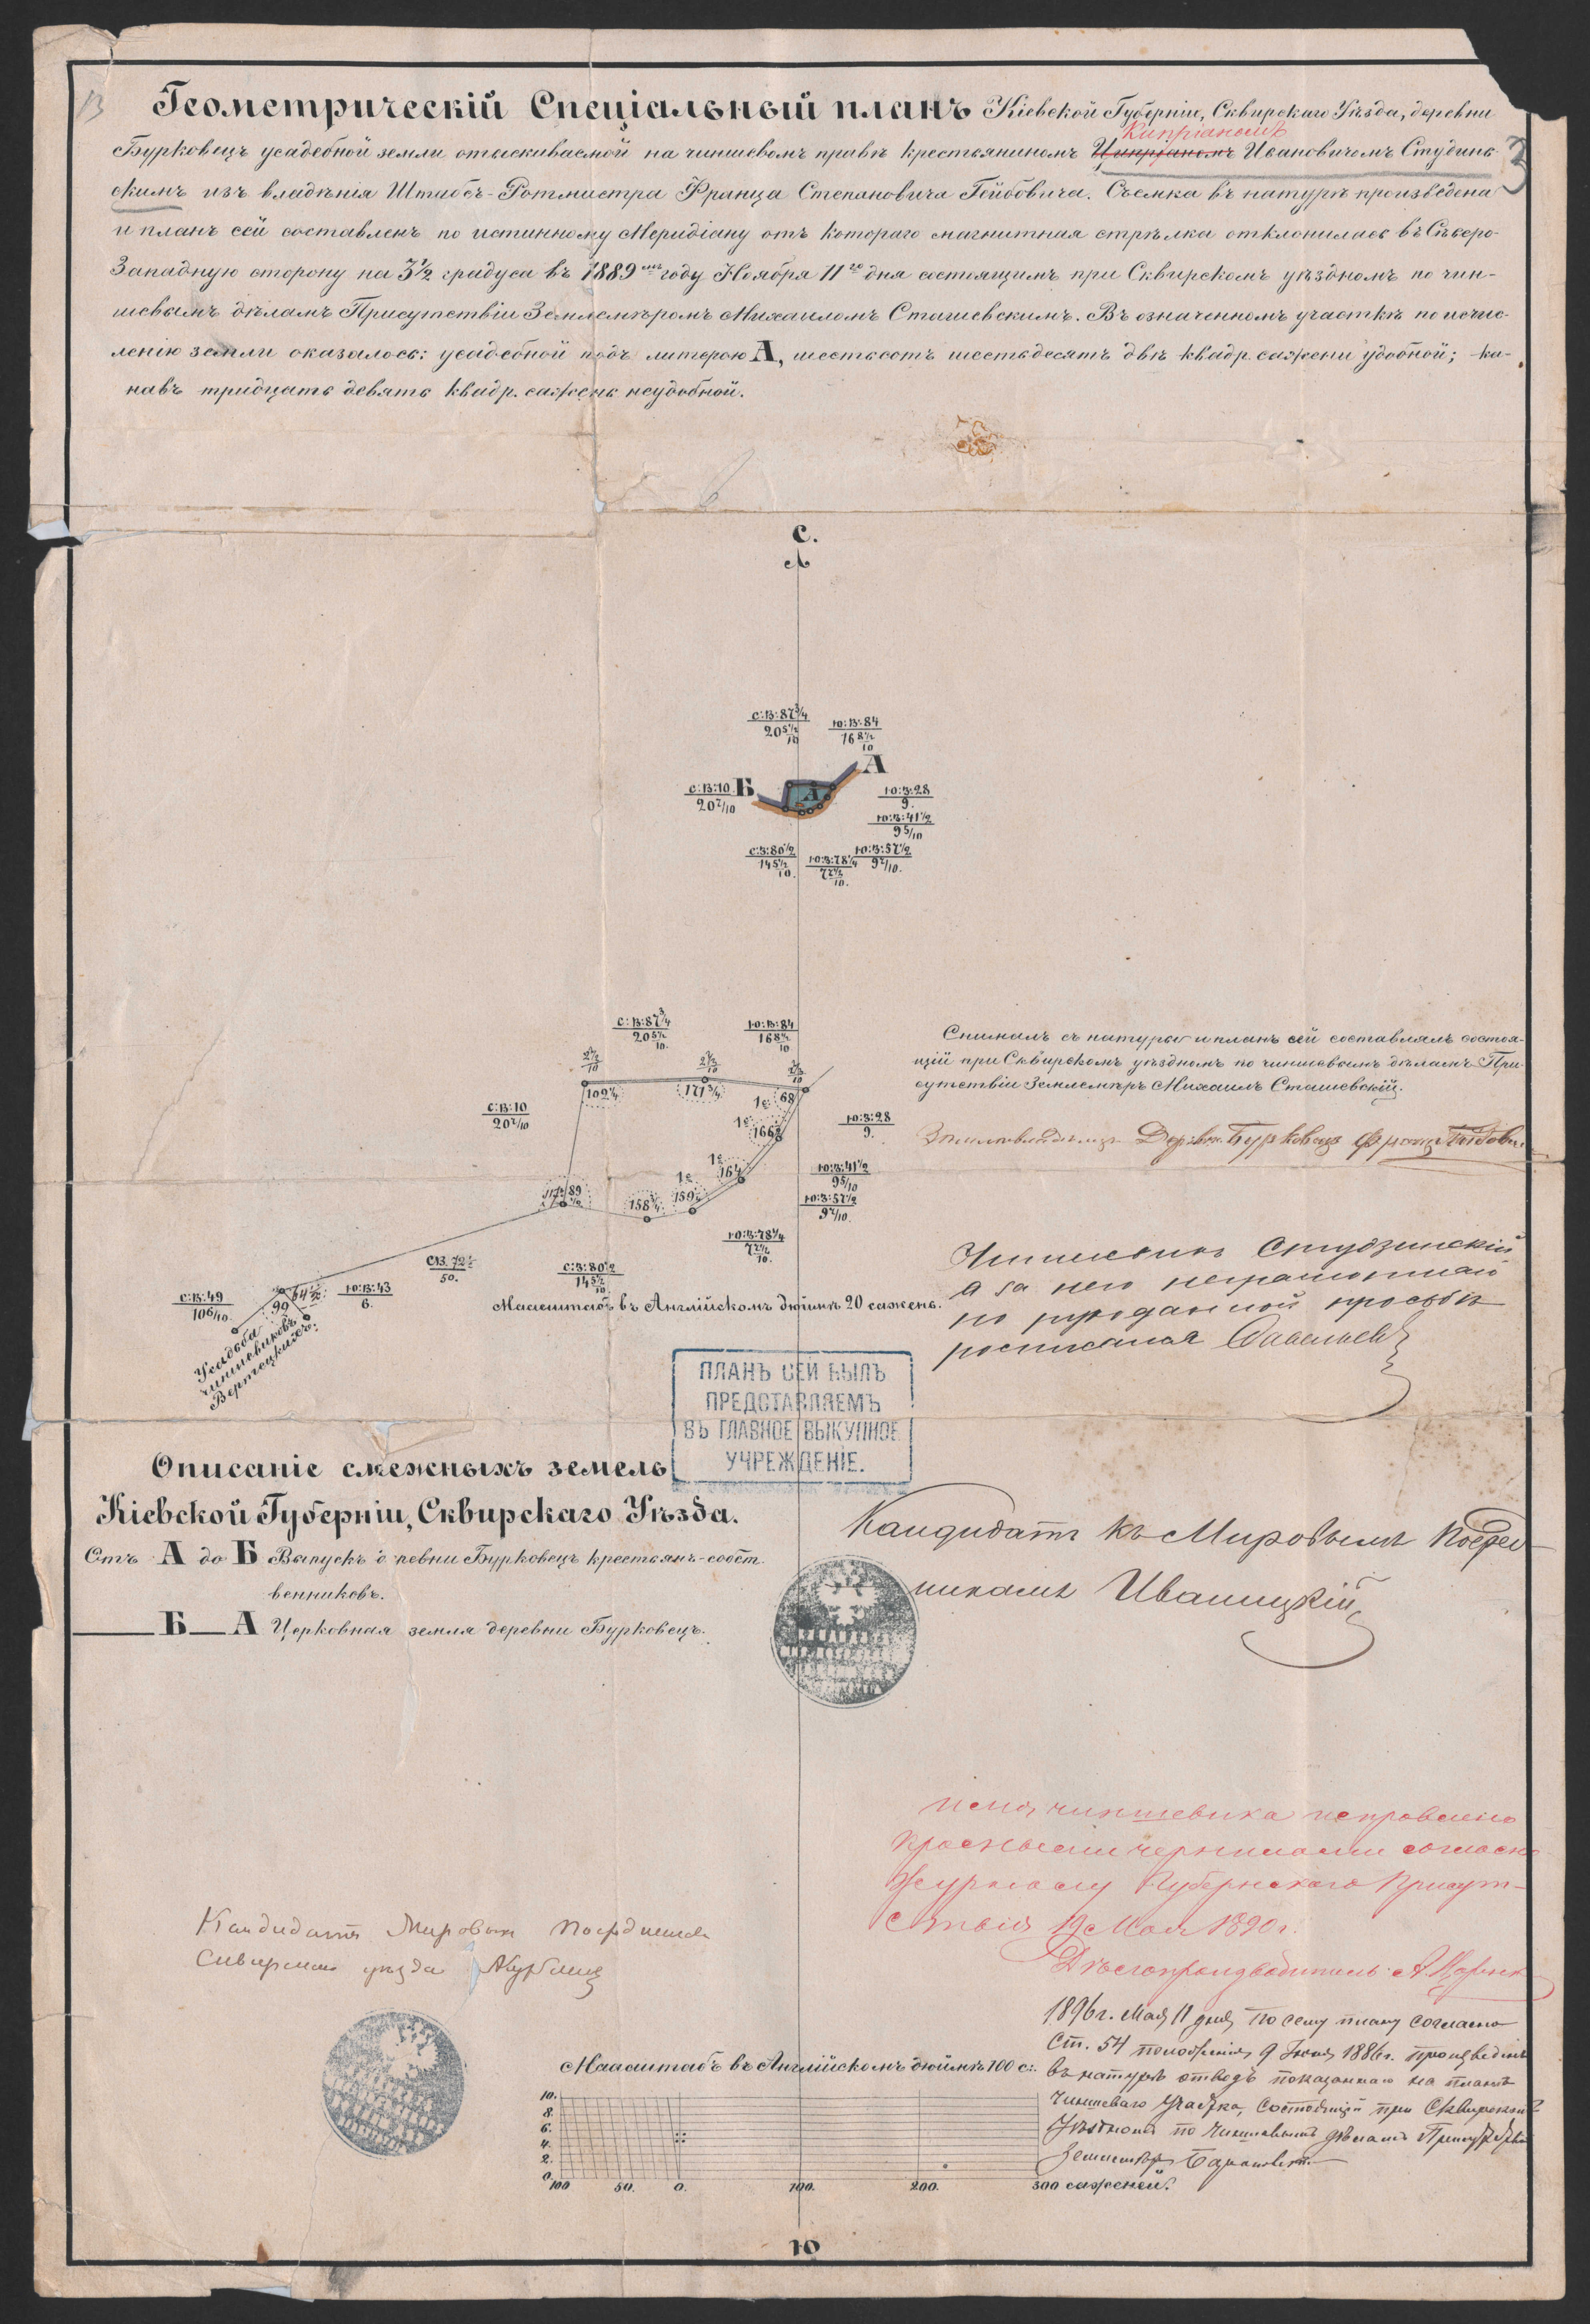 13
Геометрическій Спеціальный планъ Кіевской Губерніи, Сквирскаго Уѣзда, деревни
Кипріаномъ
Бурковецъ усадебной земли отыскиваемой на чиншевомъ правѣ крестьяниномъ Ципріаномъ Ивановичемъ Студзинь-
3
скимъ изъ владѣнія Штабсъ-Ротмистра Франца Степановича Гейбовича. Съемка въ натурѣ произведена
и планъ сей составленъ по истинному Меридіану отъ котораго магнитная стрѣлка отклонилась въ Сѣверо-
Западную сторону на 3½ градуса въ 1889 мъ году Ноября 11 го дня состоящимъ при Сквирскомъ уѣздномъ по чин-
шевымъ дѣламъ Присутствіи Землемѣромъ Михаиломъ Сташевскимъ. Въ означенномъ участкѣ по исчис-
ленію земли оказалось: усадебной подъ литерою А, шестьсотъ шестьдесятъ двѣ квадр. сажени удобной; ка-
навъ тридцать девять квадр. сажень неудобной.
С.
С:В:87¾
20 5½/10
Ю:В:84
16 8½/10
А
С:В:10
20 7/10
Б
А
Ю:З:28
9.
Ю:З:41½
9 5/10
Ю:З:57½
9 7/10.
С:З:80½
14 5½/10.
Ю:З:78¼
7 7½/10.
С:В:87¾
20 5½/10.
Ю:В:84
16 8½/10
102¼
171¾
68
С:В:10
20 7/10
Ю:З:28
9.
166½
164
Ю:З:41½
9 5/10
159½
158¾
89
Ю:З:57½
9 7/10.
Ю:З:78¼
7 7½/10.
С:З:80½
14 5½/10
С:В:72½
50.
С:В:49
10 6/10.
64½
99
Ю:В:43
6.
Усадьба
чиншевиковъ
Вертецкихъ.
Маасштабъ въ Англійскомъ дюймѣ 20 сажень.
Снималъ съ натуры и планъ сей составлялъ состоя-
щій при Сквирскомъ уѣздномъ по чиншевымъ дѣламъ При-
сутствіи Землемѣръ Михаилъ Сташевскій.
Землевладѣлецъ Дерев. Бурковецъ Францъ
Чиншевикъ Студзинскій
а за него неграмотнаго
по рукоданной просьбѣ
росписался
ПЛАНЪ СЕЙ БЫЛЪ
ПРЕДСТАВЛЯЕМЪ
ВЪ ГЛАВНОЕ ВЫКУПНОЕ
УЧРЕЖДЕНІЕ.
Описаніе смежныхъ земель
Кіевской Губерніи, Сквирскаго Уѣзда.
Отъ А до Б Выпускъ деревни Бурковецъ крестьянъ-собст
венниковъ.
Б — А Церковная земля деревни Бурковецъ.
Кандидатъ къ Мировымъ Посред-
никамъ Иваницкій
Имя чиншевика исправлено
красными чернилами согласно
журналу Губернскаго Присут-
ствія 19 Мая 1890 г.
Дѣлопроизводитель А.
Кандидатъ Мировыхъ Посредниковъ
Сквирскаго уѣзда
1896 г. Мая 11 дня по сему плану согласно
Ст. 54 положенія 9 Іюня 1886 г. произведенъ
въ натурѣ отводъ показаннаго на планѣ
чиншеваго участка, состоящій при Сквирскомъ
Уѣздномъ по чиншевымъ дѣламъ Присутствіи
Землемѣръ
Маасштабъ въ Англійскомъ дюймѣ 100 с.
10.
8.
6.
4.
2.
0.
100 50. 0. 100. 200. 300 саженей.
Ю